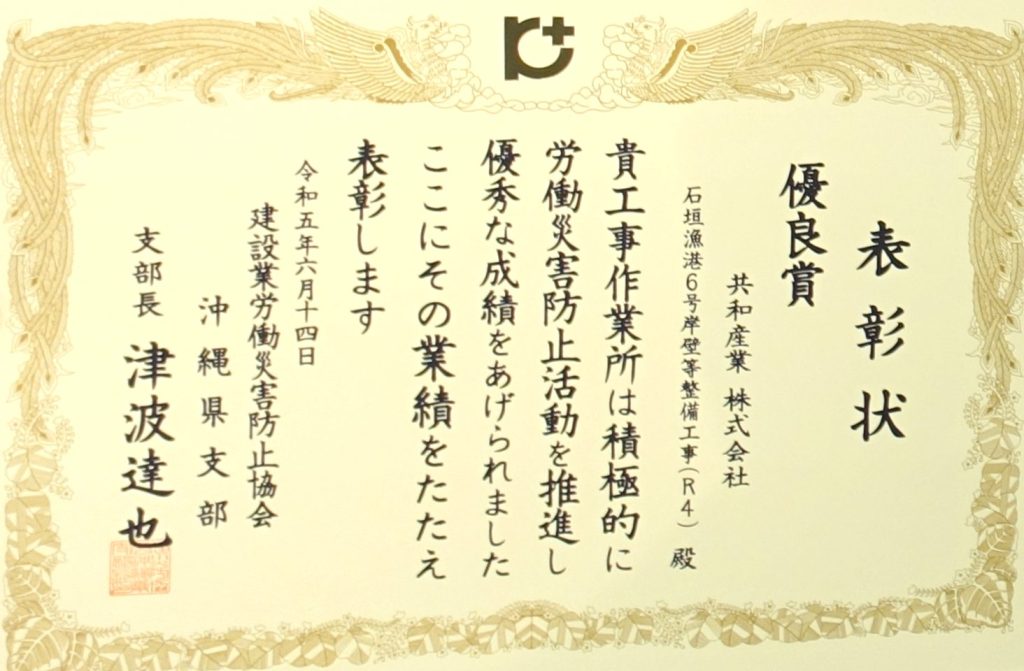 表彰状
優良賞
共和産業 株式会社
石垣漁港6号岸壁等整備工事(R4) 殿
貴工事作業所は積極的に
労働災害防止活動を推進し
優秀な成績をあげられました
ここにその業績をたたえ
表彰します
令和五年六月十四日
建設業労働災害防止協会
沖縄県支部
支部長 津波達也